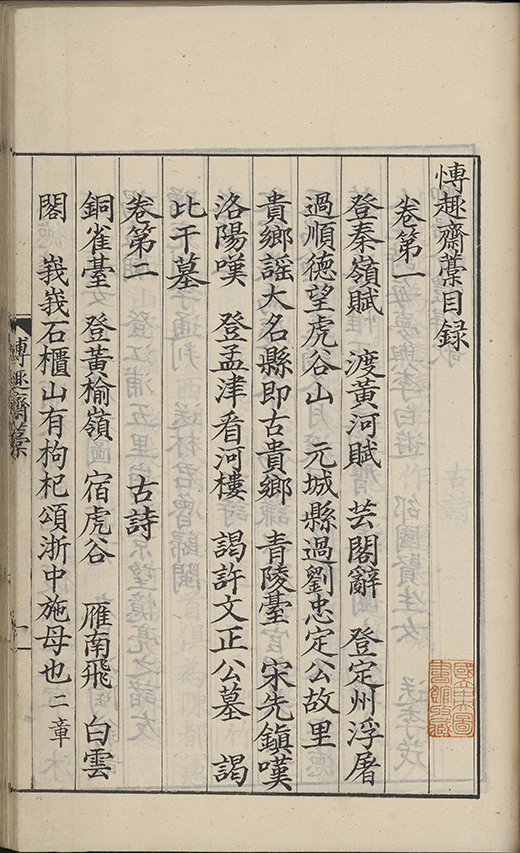 博趣齋藁目録
卷第一
登秦嶺賦 渡黃河賦 芸閣辭 登定州浮屠
過順德望虎谷山 元城縣過劉忠定公故里
貴鄉謡大名縣即古貴鄉 青陵臺 宋先鎮嘆
洛陽嘆 登孟津看河樓 謁許文正公墓 謁
比干墓
卷第二 古詩
銅雀臺 登黃榆嶺 宿虎谷 雁南飛 白雲
閣 峩峩石櫃山有枸杞頌浙中施母也二章
博趣齋藁
一
國立北平圖書館收藏